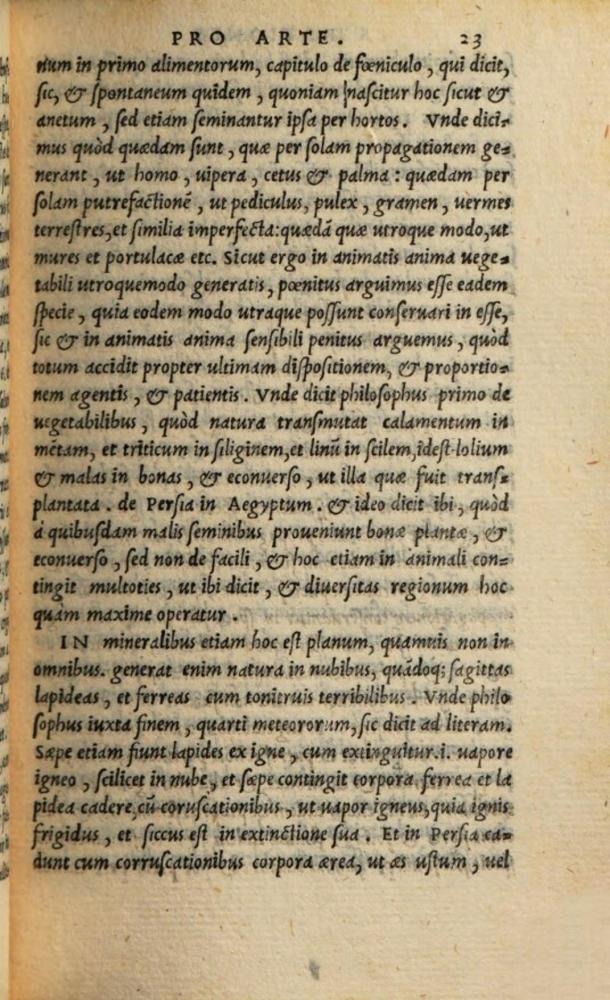 PRO ARTE. 23
num in primo alimentorum, capitulo de fœniculo, qui dicit,
ſic, & ſpontaneum quidem, quoniam naſcitur hoc ſicut &
anetum, ſed etiam ſeminantur ipſa per hortos. Vnde dici-
mus quòd quædam ſunt, quæ per ſolam propagationem ge-
nerant, ut homo, uipera, cetus & palma: quædam per
ſolam putrefactionē, ut pediculus, pulex, gramen, uermes
terreſtres, et ſimilia imperfecta: quædā quæ utroque modo, ut
mures et portulacæ etc. Sicut ergo in animatis anima uege-
tabili utroquemodo generatis, pœnitus arguimus eſſe eadem
ſpecie, quia eodem modo utraque poſſunt conſeruari in eſſe,
ſic & in animatis anima ſenſibili penitus arguemus, quòd
totum accidit propter ultimam diſpoſitionem, & proportio-
nem agentis, & patientis. Vnde dicit philoſophus primo de
uegetabilibus, quòd natura tranſmutat calamentum in
mētam, et triticum in ſiliginem, et linū in ſcilem, ideſt lolium
& malas in bonas, & econuerſo, ut illa quæ fuit tranſ-
plantata. de Perſia in Aegyptum. & ideo dicit ibi, quòd
à quibuſdam malis ſeminibus proueniunt bonæ plantæ, &
econuerſo, ſed non de facili, & hoc etiam in animali con-
tingit multoties, ut ibi dicit, & diuerſitas regionum hoc
quàm maxime operatur.
IN mineralibus etiam hoc eſt planum, quamuis non in
omnibus. generat enim natura in nubibus, quādoq; ſagittas
lapideas, et ferreas cum tonitruis terribilibus. Vnde philo
ſophus iuxta finem, quarti meteororum, ſic dicit ad literam.
Sæpe etiam fiunt lapides ex igne, cum extinguitur .i. uapore
igneo, ſcilicet in nube, et ſæpe contingit corpora ferrea et la
pidea cadere, cū coruſcationibus, ut uapor igneus, quia ignis
frigidus, et ſiccus eſt in extinctione ſua. Et in Perſia ca-
dunt cum corruſcationibus corpora ærea, ut æs uſtum, uel